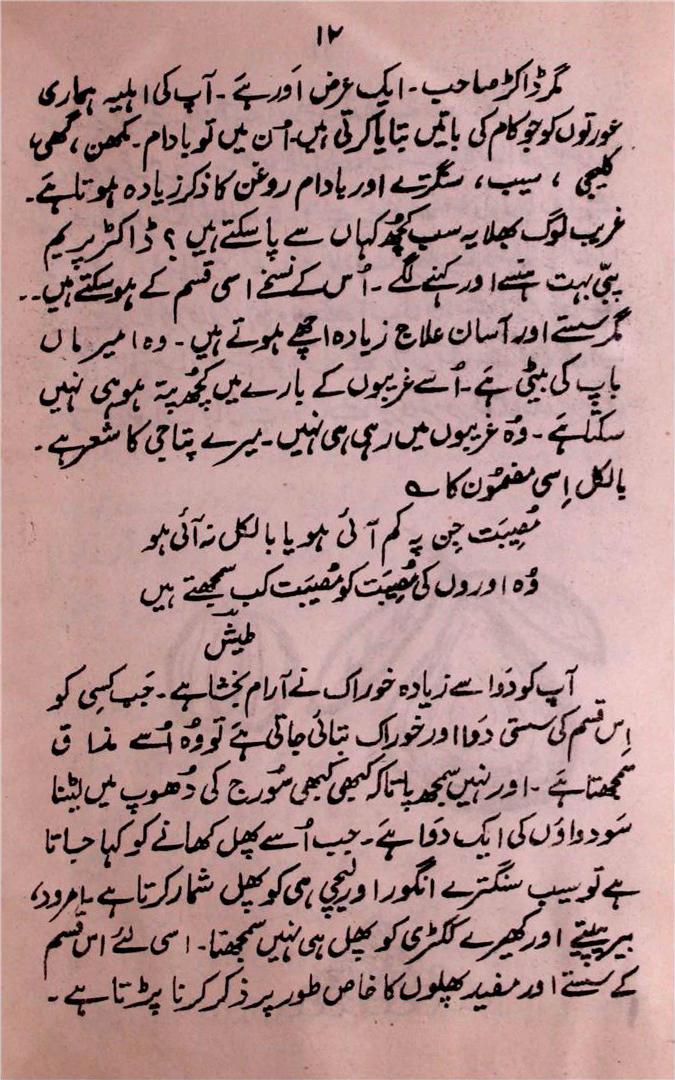 ۱۲
مگر ڈاکڑ صاحب۔ ایک عرض اَور ہے۔ آپ کی اہلیہ ہماری
عورتوں کو جو کام کی باتیں بتایا کرتی ہیں۔ اُن میں تو بادام۔ مکھن، گھی،
کلیجی، سیب، سنگترے اور بادام روغن کا ذکر زیادہ ہوتا ہے۔
غریب لوگ بھلا یہ سب کچُھ کہاں سے پا سکتے ہیں؟ ڈاکٹر پریم
پپّی بہت ہنسے اور کہنے لگے۔ اُس کے نسخے اسی قسم کے ہو سکتے ہیں۔۔
مگر سستے اور آسان علاج زیادہ اچھے ہوتے ہیں۔ وہ امیر ماں
باپ کی بیٹی ہے۔ اُسے غریبوں کے بارے میں کچُھ پتہ ہو ہی نہیں
سکتا ہے۔ وُہ غریبوں میں رہی ہی نہیں۔ میرے پتاجی کا شعر ہے۔
بالکل اِسی مضمُون کا ؎
مُصِیبَت جِن پہ کم آئی ہو یا بالکل نہ آئی ہو
وُہ اوروں کی مُصِیبَت کو مُصیبَت کب سمجھتے ہیں
طیشؔ
آپ کو دَوا سے زیادہ خوراک نے آرام بخشا ہے۔ جَب کسِی کو
اِس قسم کی سستی دَوا اور خوراک بتائی جاتی ہے تو وُہ اُسے مذاق
سمجھتا ہے۔ اور نہیں سمجھ پاتا کہ کبھی کبھی سُورج کی دُھوپ میں لیٹنا
سَو دواؤں کی ایک دَوا ہے۔ جب اُسے پھل کھانے کو کہا جاتا
ہے تو سیب سنگترے انگور اور لیچی ہی کو پھل شمار کرتا ہے۔ امرود،
بیر پپیتے اور کھیرے ککڑی کو پھل ہی نہیں سمجھتا۔ اسی لئے اس قسم
کے سستے اور مفید پھلوں کا خاص طور پر ذکر کرنا پڑتا ہے۔